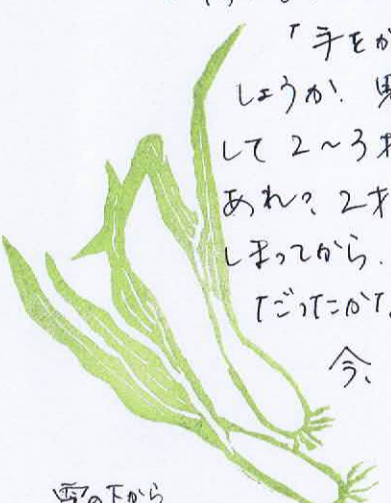 「手をか
しょうか.
して2〜3才
あれ?2才
しまってから.
だったかな
今、
雪の下から